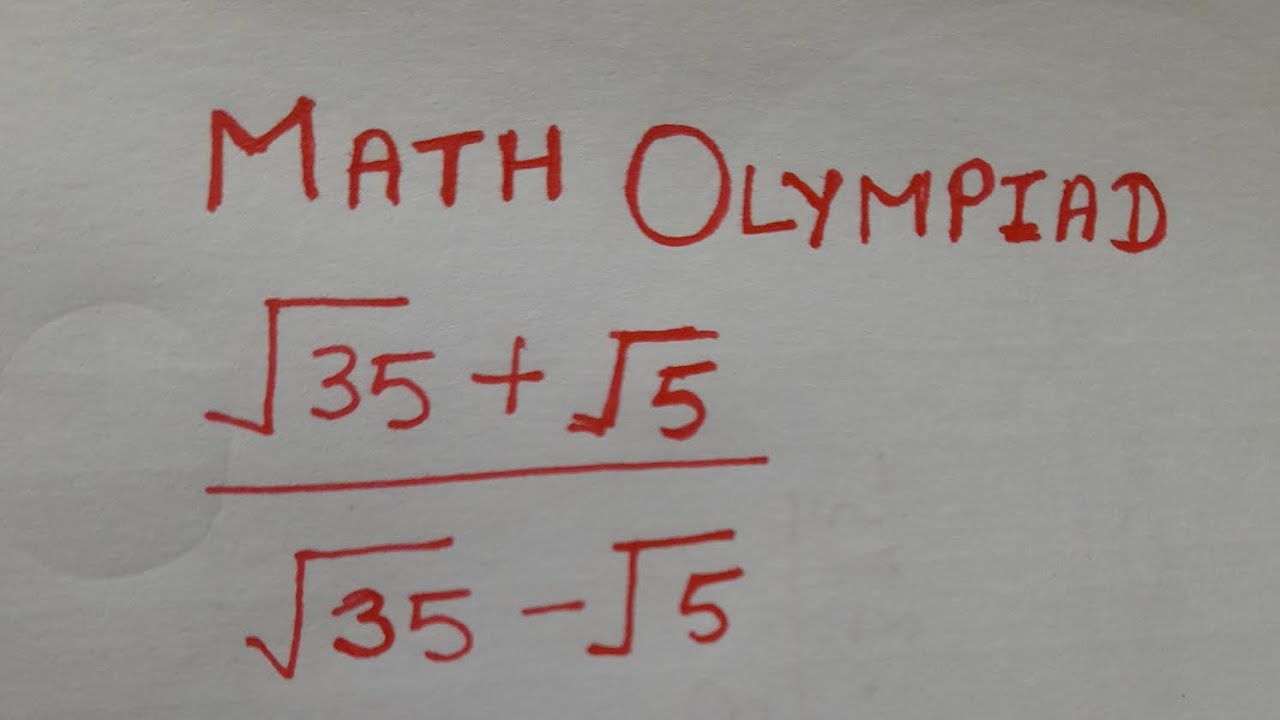 MATH OLYMPIAD
√35 + √5
√35 - √5